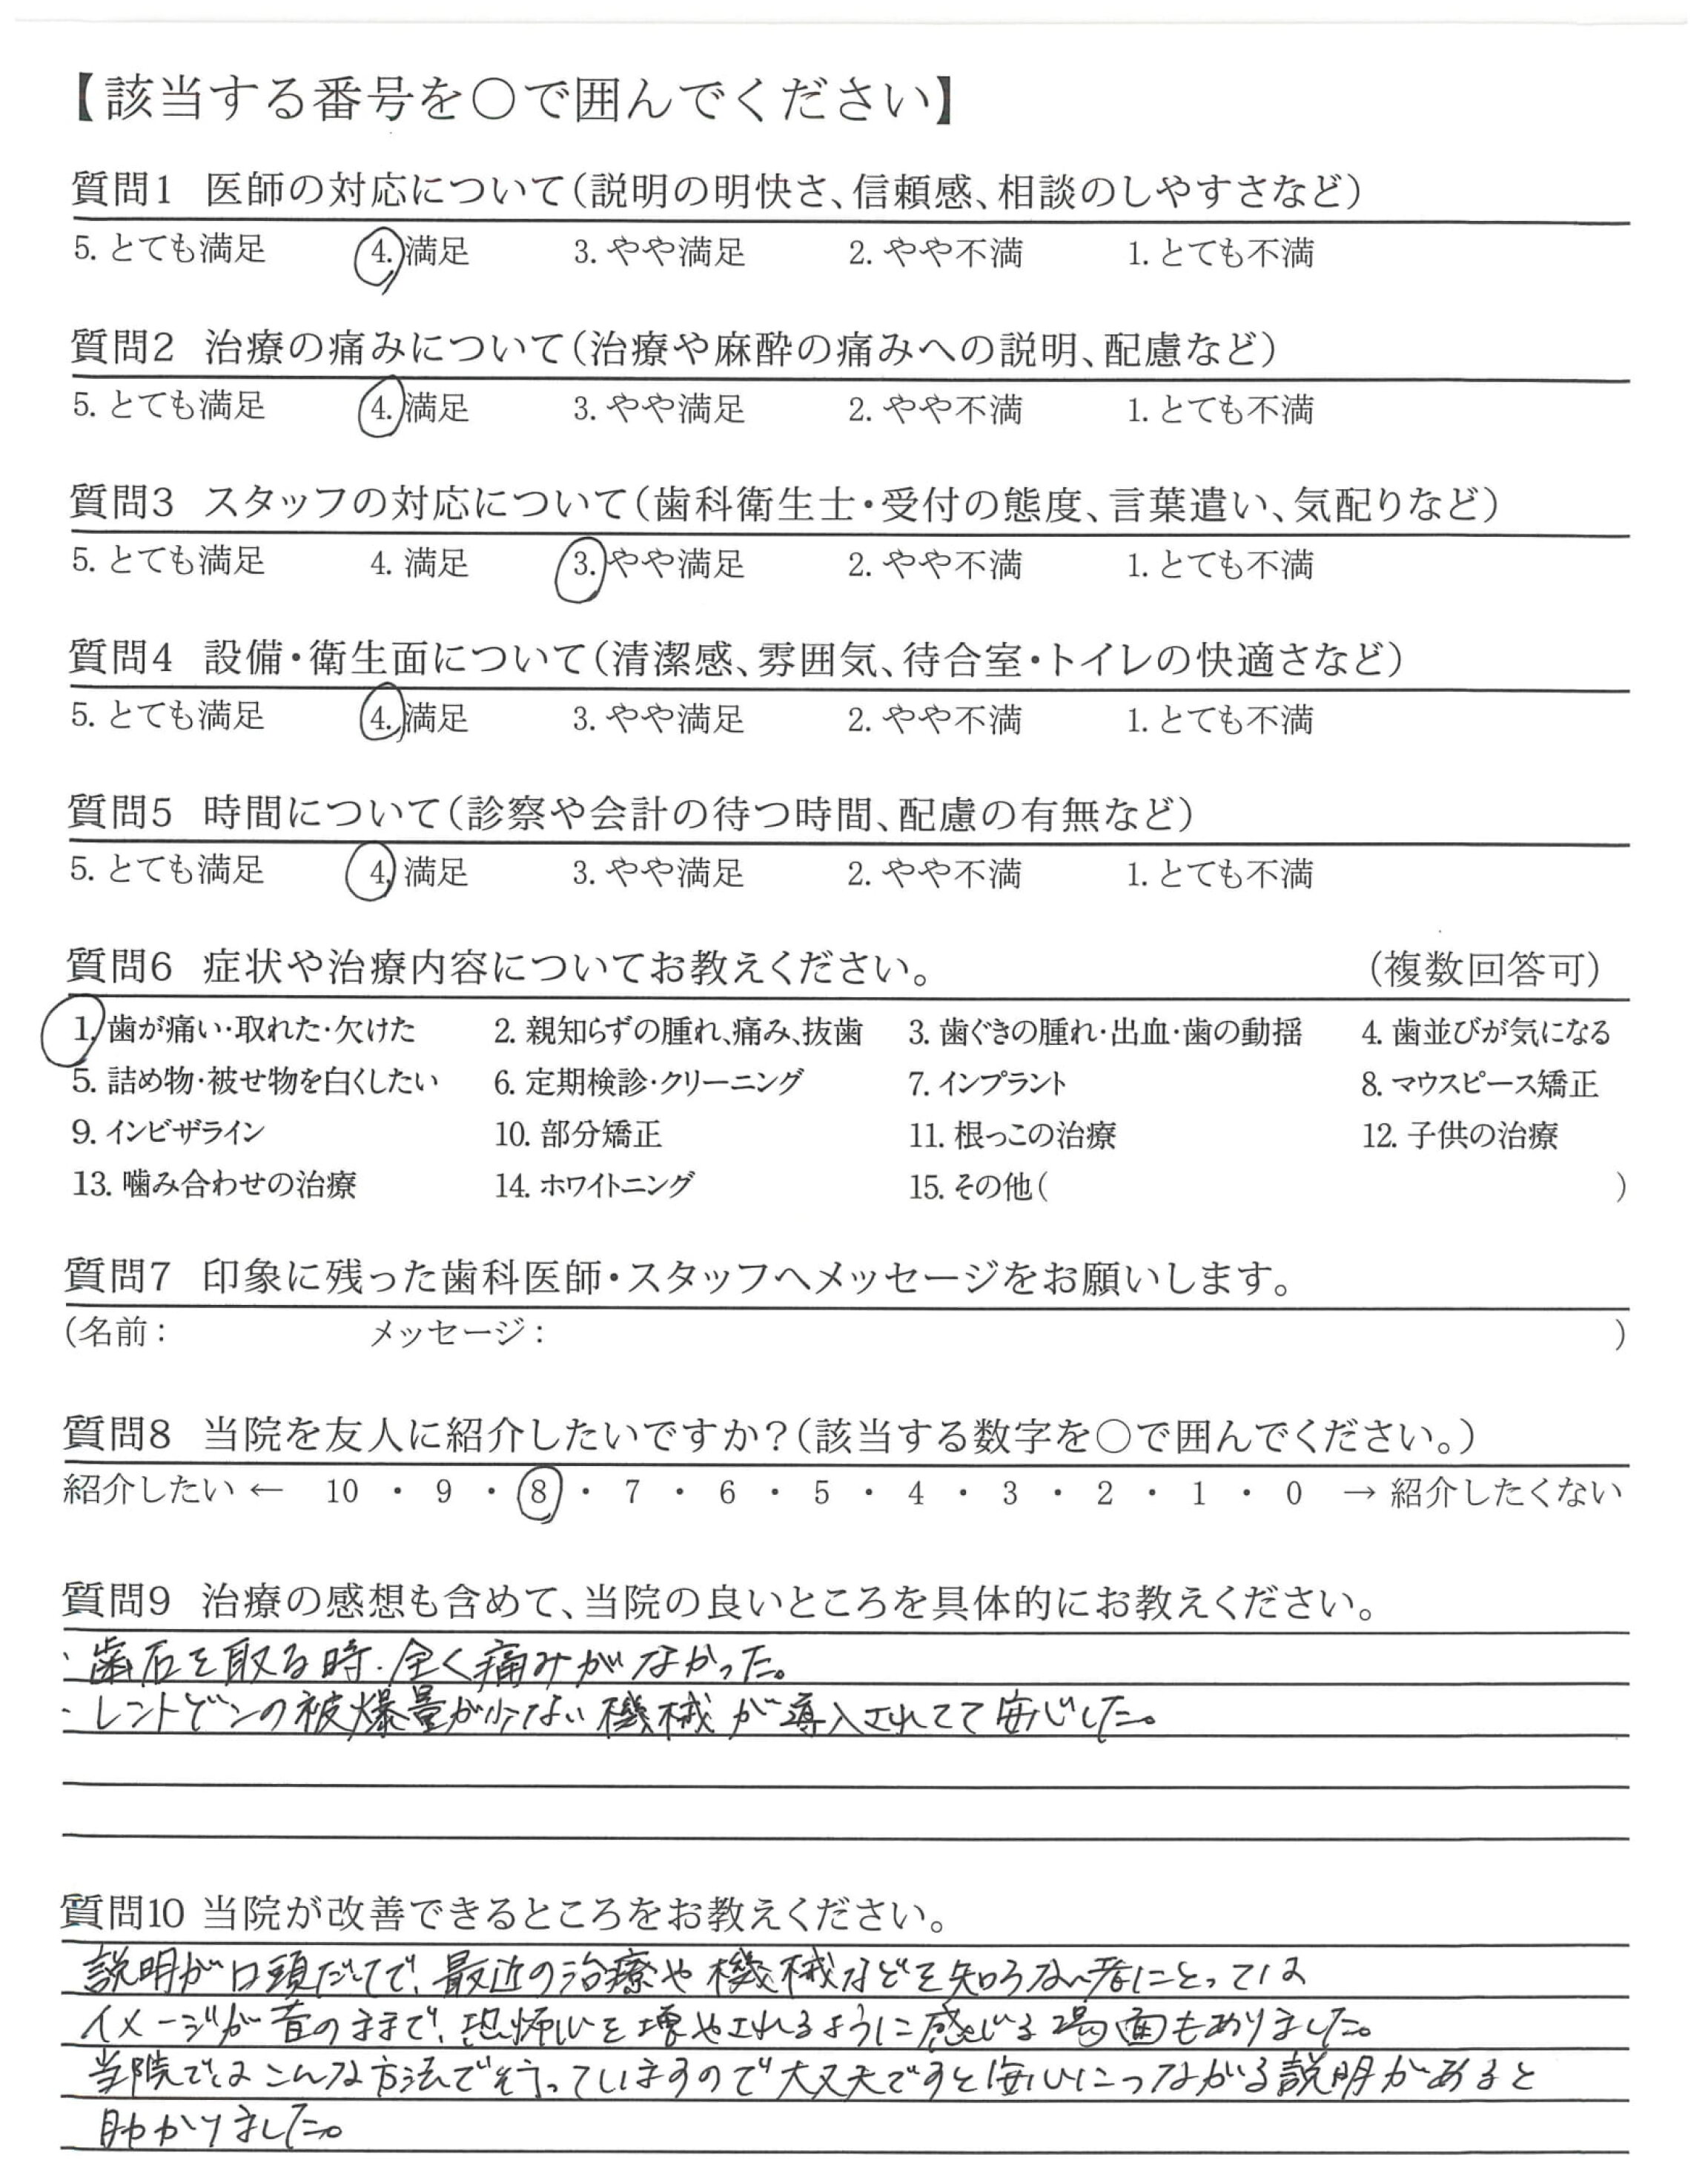 【該当する番号を○で囲んでください】
質問1 医師の対応について(説明の明快さ、信頼感、相談のしやすさなど)
5. とても満足 4. 満足 3. やや満足 2. やや不満 1. とても不満
質問2 治療の痛みについて(治療や麻酔の痛みへの説明、配慮など)
5. とても満足 4. 満足 3. やや満足 2. やや不満 1. とても不満
質問3 スタッフの対応について(歯科衛生士・受付の態度、言葉遣い、気配りなど)
5. とても満足 4. 満足 3. やや満足 2. やや不満 1. とても不満
質問4 設備・衛生面について(清潔感、雰囲気、待合室・トイレの快適さなど)
5. とても満足 4. 満足 3. やや満足 2. やや不満 1. とても不満
質問5 時間について(診察や会計の待つ時間、配慮の有無など)
5. とても満足 4. 満足 3. やや満足 2. やや不満 1. とても不満
質問6 症状や治療内容についてお教えください。 (複数回答可)
1. 歯が痛い・取れた・欠けた 2. 親知らずの腫れ、痛み、抜歯 3. 歯ぐきの腫れ・出血・歯の動揺 4. 歯並びが気になる
5. 詰め物・被せ物を白くしたい 6. 定期検診・クリーニング 7. インプラント 8. マウスピース矯正
9. インビザライン 10. 部分矯正 11. 根っこの治療 12. 子供の治療
13. 噛み合わせの治療 14. ホワイトニング 15. その他( )
質問7 印象に残った歯科医師・スタッフへメッセージをお願いします。
(名前: メッセージ: )
質問8 当院を友人に紹介したいですか?(該当する数字を○で囲んでください。)
紹介したい ← 10 ・ 9 ・ 8 ・ 7 ・ 6 ・ 5 ・ 4 ・ 3 ・ 2 ・ 1 ・ 0 → 紹介したくない
質問9 治療の感想も含めて、当院の良いところを具体的にお教えください。
・歯石を取る時、全く痛みがなかった。
・レントゲンの被爆量が少ない機械が導入されてて安心した。
質問10 当院が改善できるところをお教えください。
説明が口頭だけで、最近の治療や機械などを知らない者にとっては
イメージが昔のままで、恐怖心を増やされるように感じる場面もありました。
当院ではこんな方法で行っていますので大丈夫ですと安心につながる説明があると
助かりました。